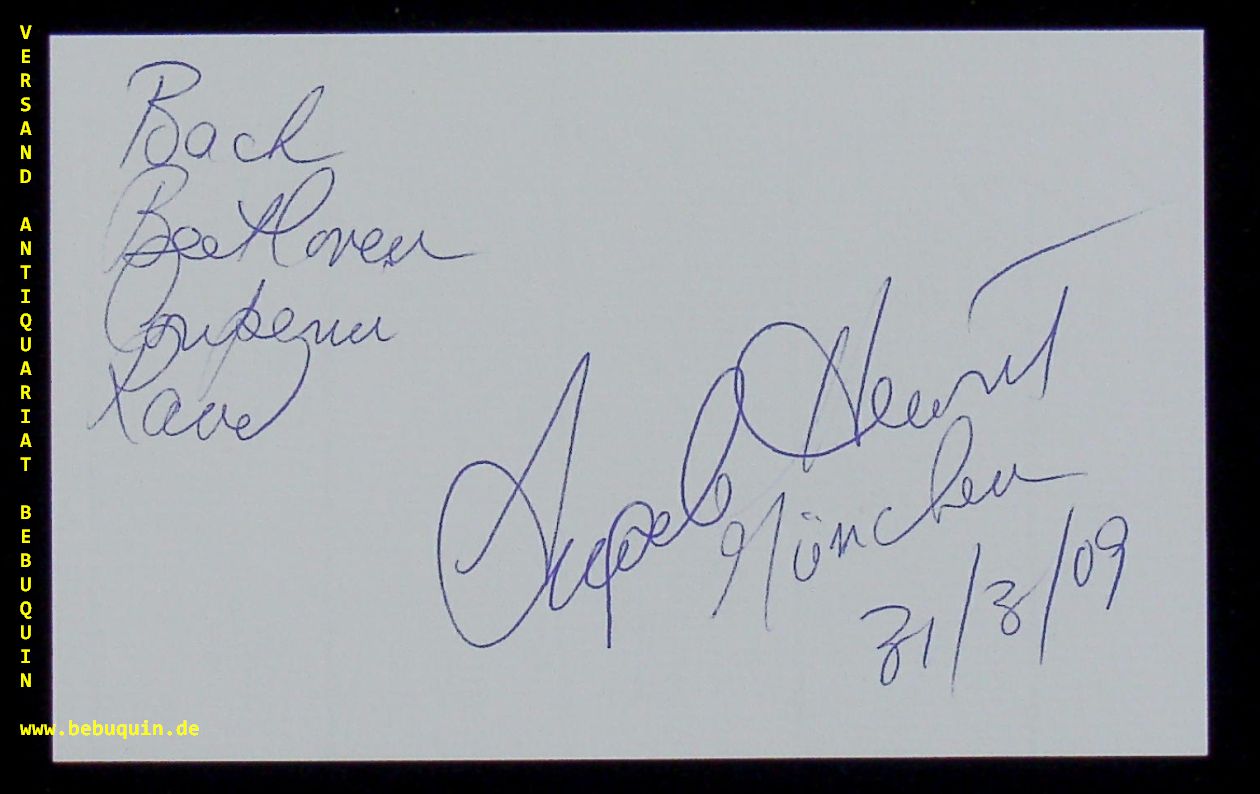 VERSAND ANTIQUARIAT BEBUQUIN
www.bebuquin.de
Bach
Beethoven
Couperin
Ravel
Angela Hewitt
München
31/3/09